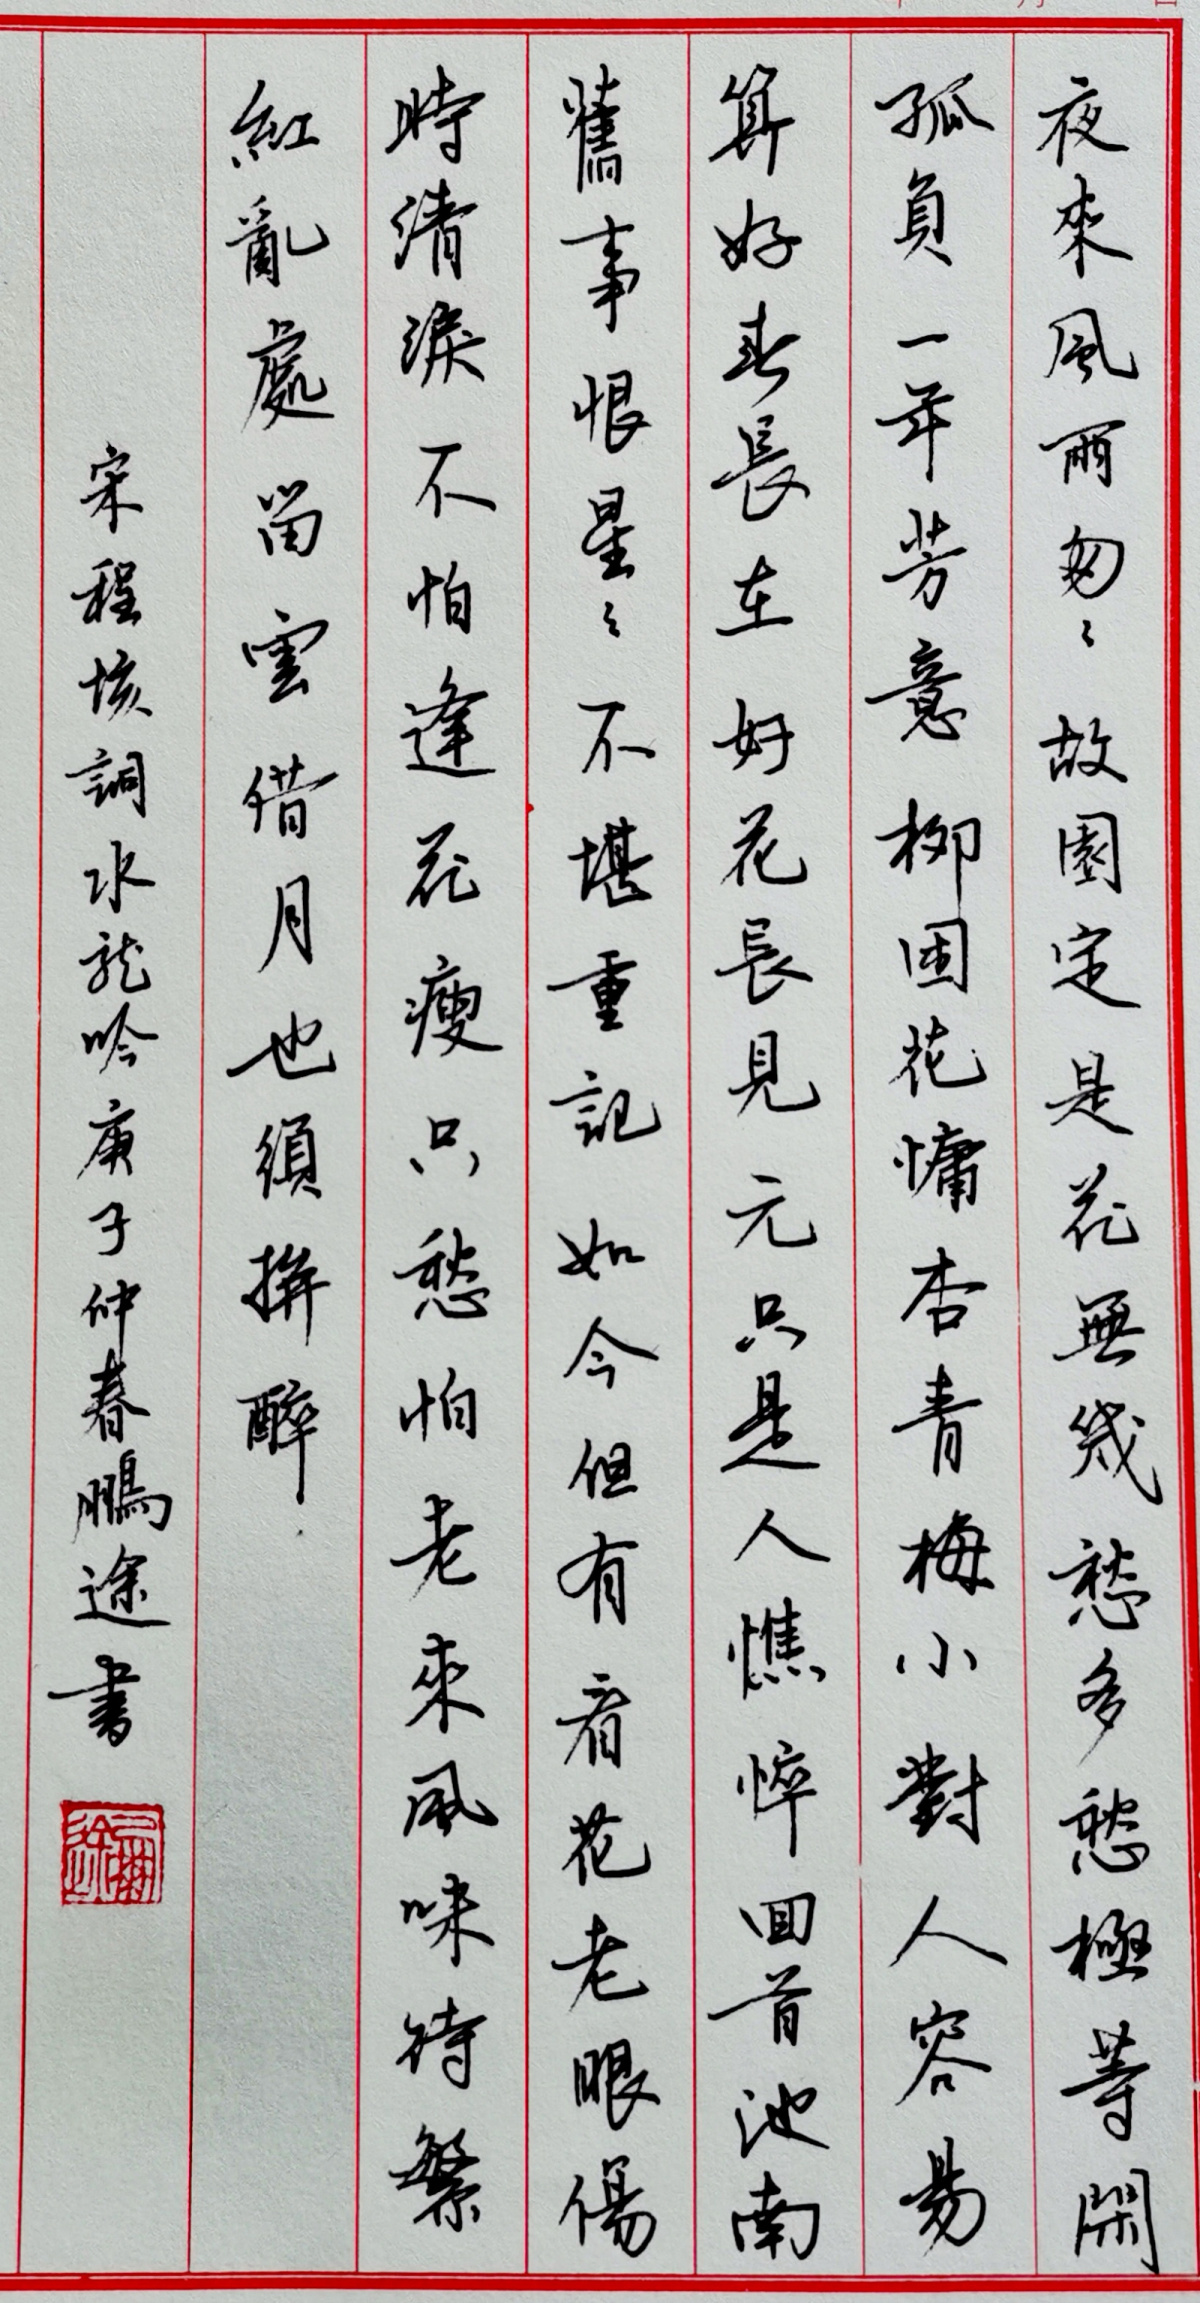 夜來風雨匆〻故園定是花無幾愁多愁極等閑
孤負一年芳意柳困花慵杏青梅小對人容易
算好春長在好花長見元只是人憔悴回首池南
舊事恨星〻不堪重記如今但有看花老眼傷
時清淚不怕逢花瘦只愁怕老來風味待繁
紅亂處留雲借月也須拚醉
宋程垓詞水龍吟庚子仲春鵬途書